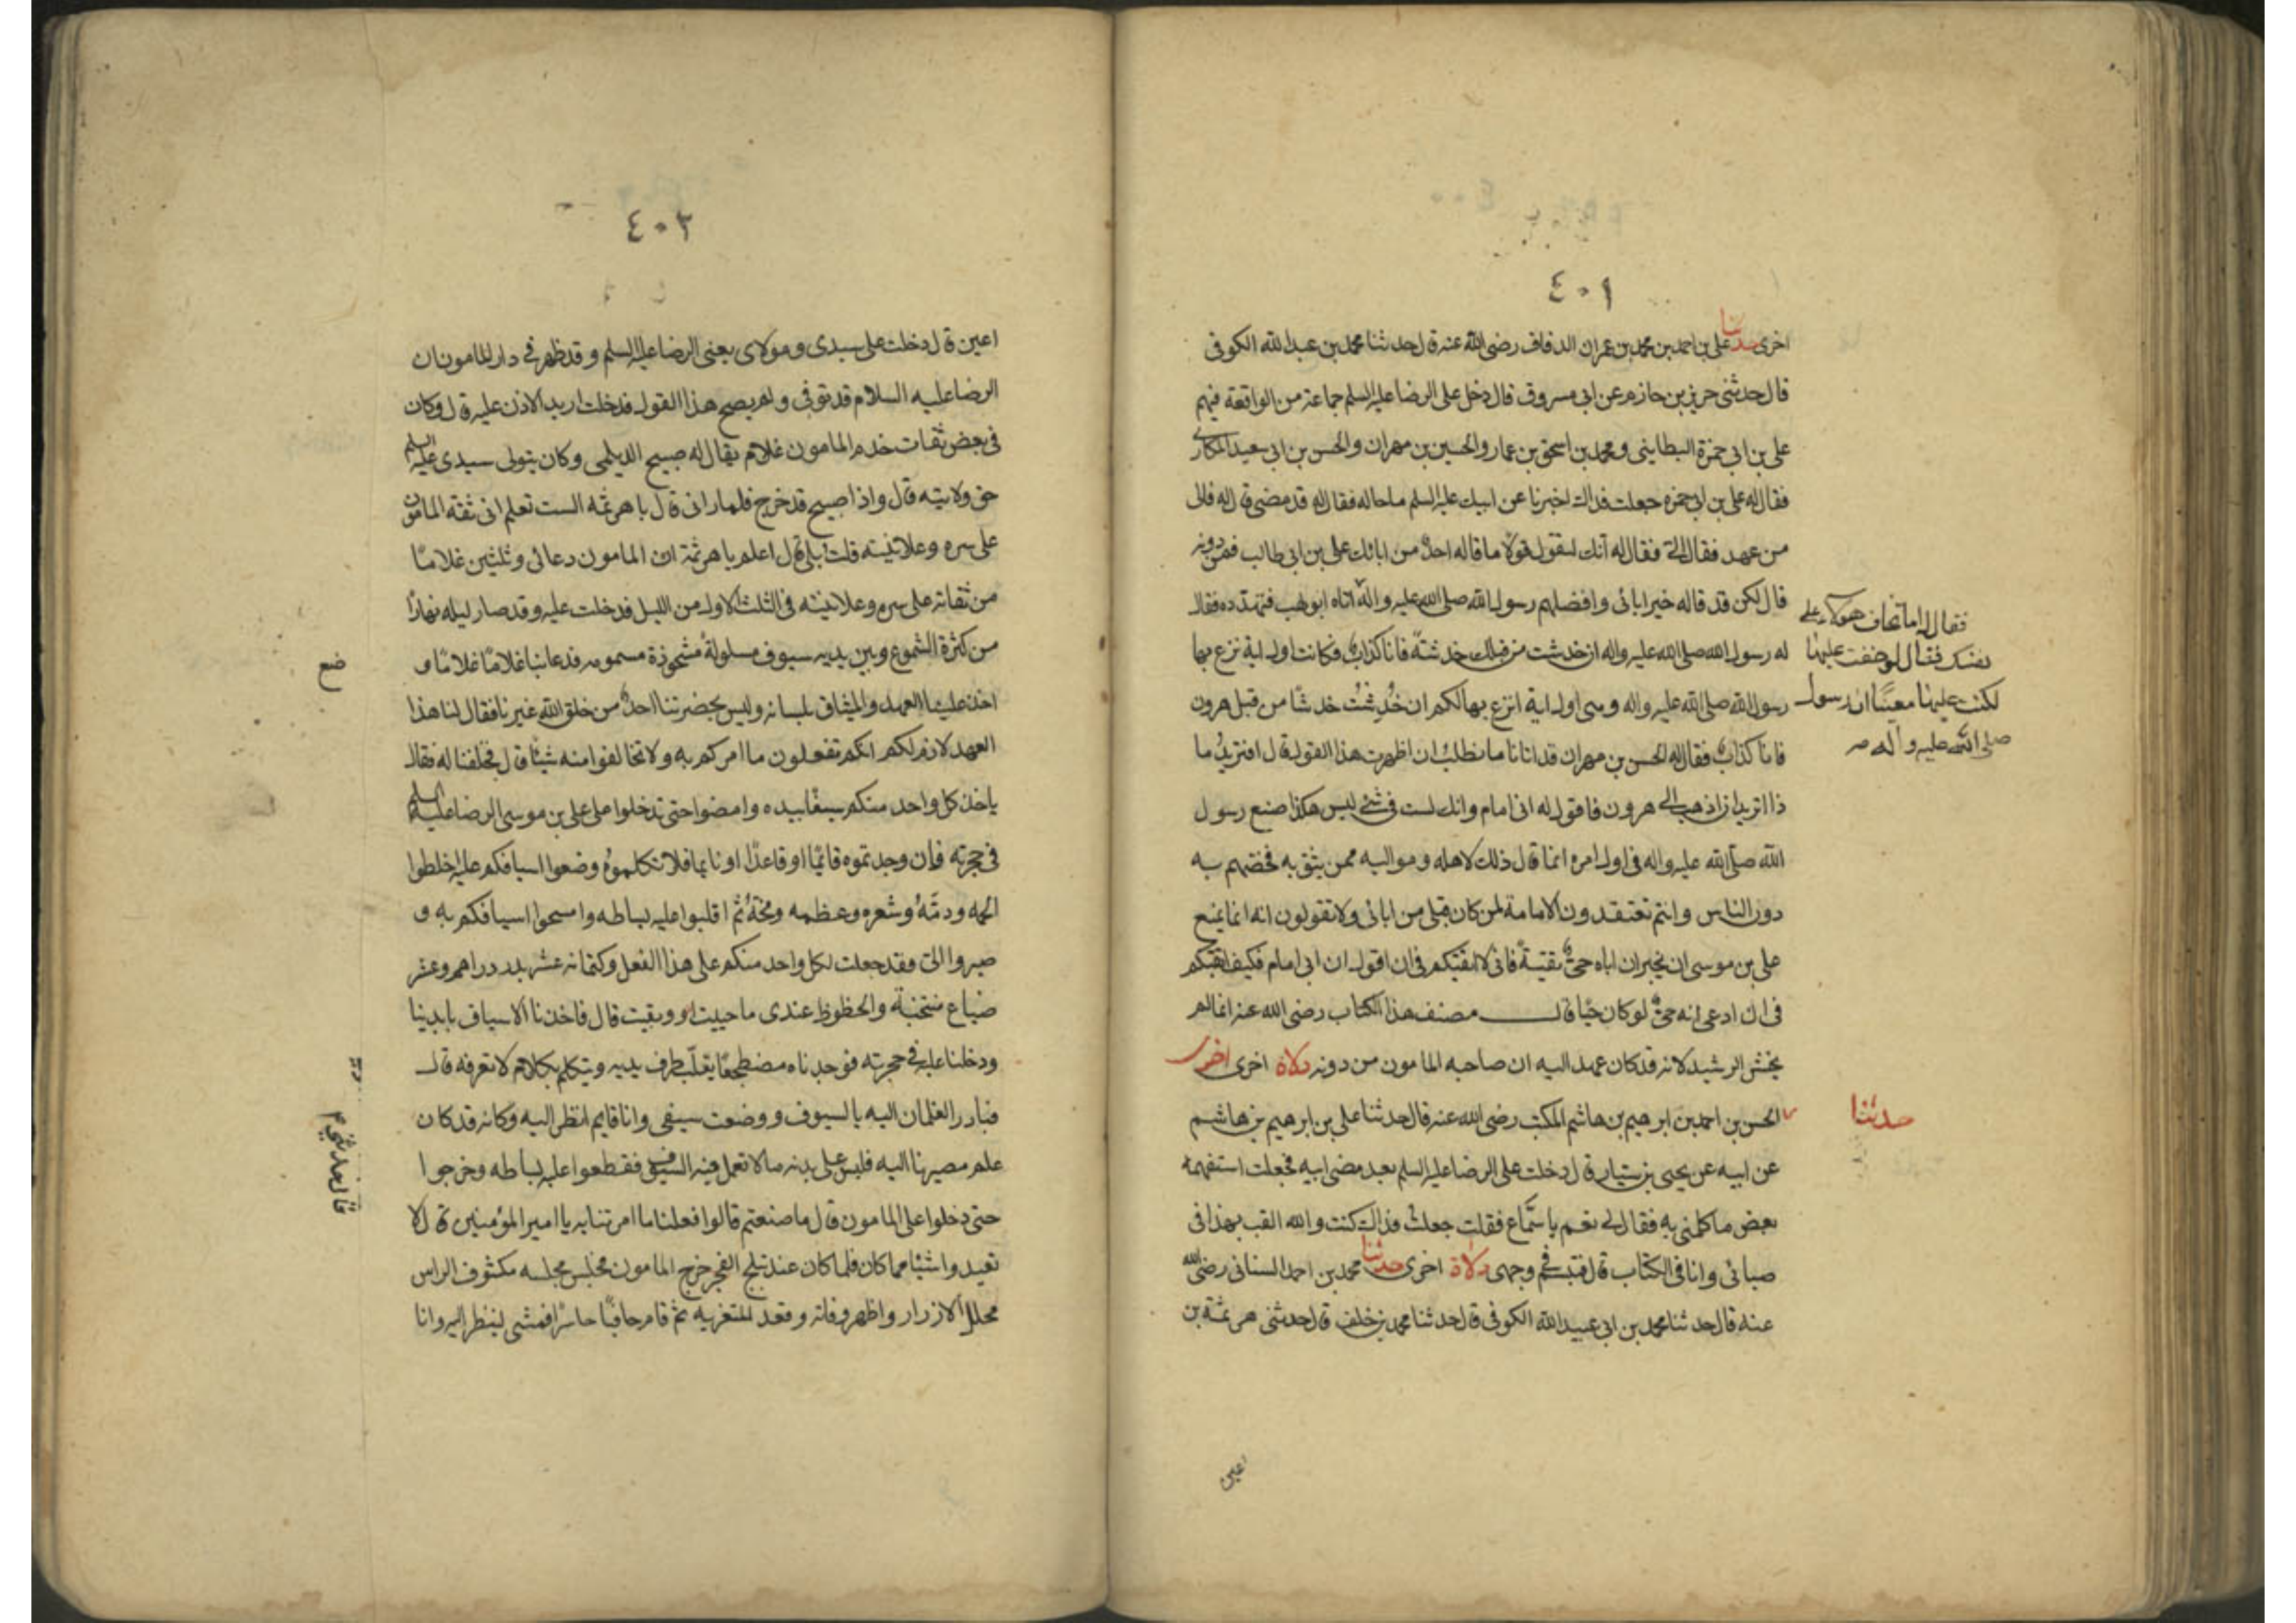 ٤٠١
اخرى حدثنا علي بن احمد بن محمد بن عمران الدقاق رضى الله عنه قال حدثنا محمد بن عبد الله الكوفى
قال حدثنى جرير بن حازم عن ابى مسروق قال دخل على الرضا عليه السلم جماعة من الواقفة فيهم
على بن ابي حمزة البطاينى ومحمد بن اسحق بن عمار والحسين بن مهران والحسن بن ابى سعيد المكارى
فقال له على بن ابى حمزه جعلت فداك اخبرنا عن ابيك عليه السلم ما حاله فقال له قد مضى قال له فالى
من عهد فقال الىّ فقال له انك لتقول قولا ما قاله احدٌ من ابائك على بن ابى طالب فمن دونه
قال لكن قد قاله خير ابائى وافضلهم رسول الله صلى الله عليه واله
فقال له اما تخاف هولاء على
نفسك فقال لو خفت عليها
لكنت عليها معينًا ان رسول
صلى الله عليه وآله
اتاه ابو لهب فتهدّده فقال
له رسول الله صلى الله عليه واله ان خدشت من قبلك خدشةً فانا كذابٌ فكانت اول اية نزع بها
رسول الله صلى الله عليه واله وهى اول اية انزع بها لكم ان خُدِشْتُ خدشًا من قبل هرون
فانا كذابٌ فقال له الحسن بن مهران قد اتانا ما نطلب ان اظهرت هذا القول قال افتريدُ ما
ذا اتريد ان اذهب الى هرون فاقول له انى امام وانك لست فى شئ ليس هكذا صنع رسول
الله صلى الله عليه واله فى اول امره انما قال ذلك لاهله ومواليه ممن يثق به فخصّهم به
دون الناس وانتم تعتقدون الامامة لمن كان قبلى من ابائى ولا تقولون انه انما يمنع
على بن موسى ان يخبر ان اباه حىٌّ تقيّةً فانى لا اتقيكم فى ان اقول انى امام فكيف اتقيكم
فى ان ادعى انه حىٌّ لو كان حيًا قال مصنف هذا الكتاب رضى الله عنه انما لم
يخش الرشيد لانه قد كان عهد اليه ان صاحبه المامون من دونه دلالة اخرى اخرى
حدثنا
الحسن بن احمد بن ابرهيم بن هاشم المكتب رضى الله عنه قال حدثنا على بن ابرهيم بن هاشم
عن ابيه عن يحيى بن بشار قال دخلت على الرضا عليه السلم بعد مضى ابيه فجعلت استفهمه
بعض ما كلمنى به فقال لى نعم يا سمّاع فقلت جعلتُ فداك كنت والله القب بهذا فى
صبائى وانا فى الكتاب قال فتبسّم فى وجهى دلالة اخرى حدثنا محمد بن احمد السنانى رضى الله
عنه قال حدثنا محمد بن ابى عبيد الله الكوفى قال حدثنا محمد بن خلف قال حدثنى هرثمة بن
اعين
٤٠٢
اعين قال دخلت على سيدى ومولاى يعنى الرضا عليه السلم وقد ظهر فى دار المامون ان
الرضا عليه السلام قد توفى ولم يصح هذا القول فدخلت اريد الاذن عليه قال وكان
فى بعض ثقات خدم المامون غلام يقال له صبيح الديلمى وكان يتولى سيدى عليه السلم
حق ولايته قال واذا صبيح قد خرج فلما رانى قال يا هرثمه الست تعلم انى ثقه المامون
على سره وعلانيته قلت بلى قال اعلم يا هرثمة ان المامون دعانى وثلثين غلامًا
من ثقاته على سره وعلانيته فى الثلث الاول من الليل فدخلت عليه وقد صار ليله نهارًا
من كثرة الشموع وبين يديه سيوف مسلولةُ مشحوذة مسمومه فدعا بنا غلامًا غلامًا و
اخذ علينا العهد والميثاق بلسانه وليس بحضرتنا احدٌ من خلق الله غيرنا فقال لنا هذا
العهد لازم لكم انكم تفعلون ما امركم به ولا تخالفوا منه شيئًا قال فحلفنا له فقال
ياخذ كل واحد منكم سيفًا بيده وامضوا حتى تدخلوا على على بن موسى الرضا عليه السلم
فى حجرته فان وجدتموه قائمًا او قاعدًا او نايما فلا تكلموهُ وضعوا اسيافكم عليه اخلطوا
لحمه ودمَهُ وشعره وعظمه ومخّهُ ثم اقلبوا عليه بساطه وامسحوا اسيافكم به و
صيروا الىّ وقد جعلت لكل واحد منكم على هذا الفعل وكتمانه عشر بدر دراهم وعشر
ضياع منتخبة والحظوظ عندى ما حييت وبقيت قال فاخذنا الاسياف بايدينا
ودخلنا عليه فى حجرته فوجدناه مضطجعًا يقلّب طرف يديه ويتكلم بكلام لا نعرفه قال
فبادر الغلمان اليه بالسيوف ووضعت سيفى وانا قايم انظر اليه وكانه قد كان
علم مصيرنا اليه فلبس على بدنه ما لا تعمل فيه السيوف فقطعوا عليه بساطه وخرجوا
حتى دخلوا على المامون قال ما صنعتم قالوا فعلنا ما امرتنا به يا امير المؤمنين قال لا
تعيدوا شيئًا مما كان فلما كان عند تبلج الفجر خرج المامون فجلس مجلسه مكشوف الراس
محلل الازرار واظهر وفاته وقعد للتعزيه ثم قام حافيًا حاسرًا فمشى لينظر اليه وانا